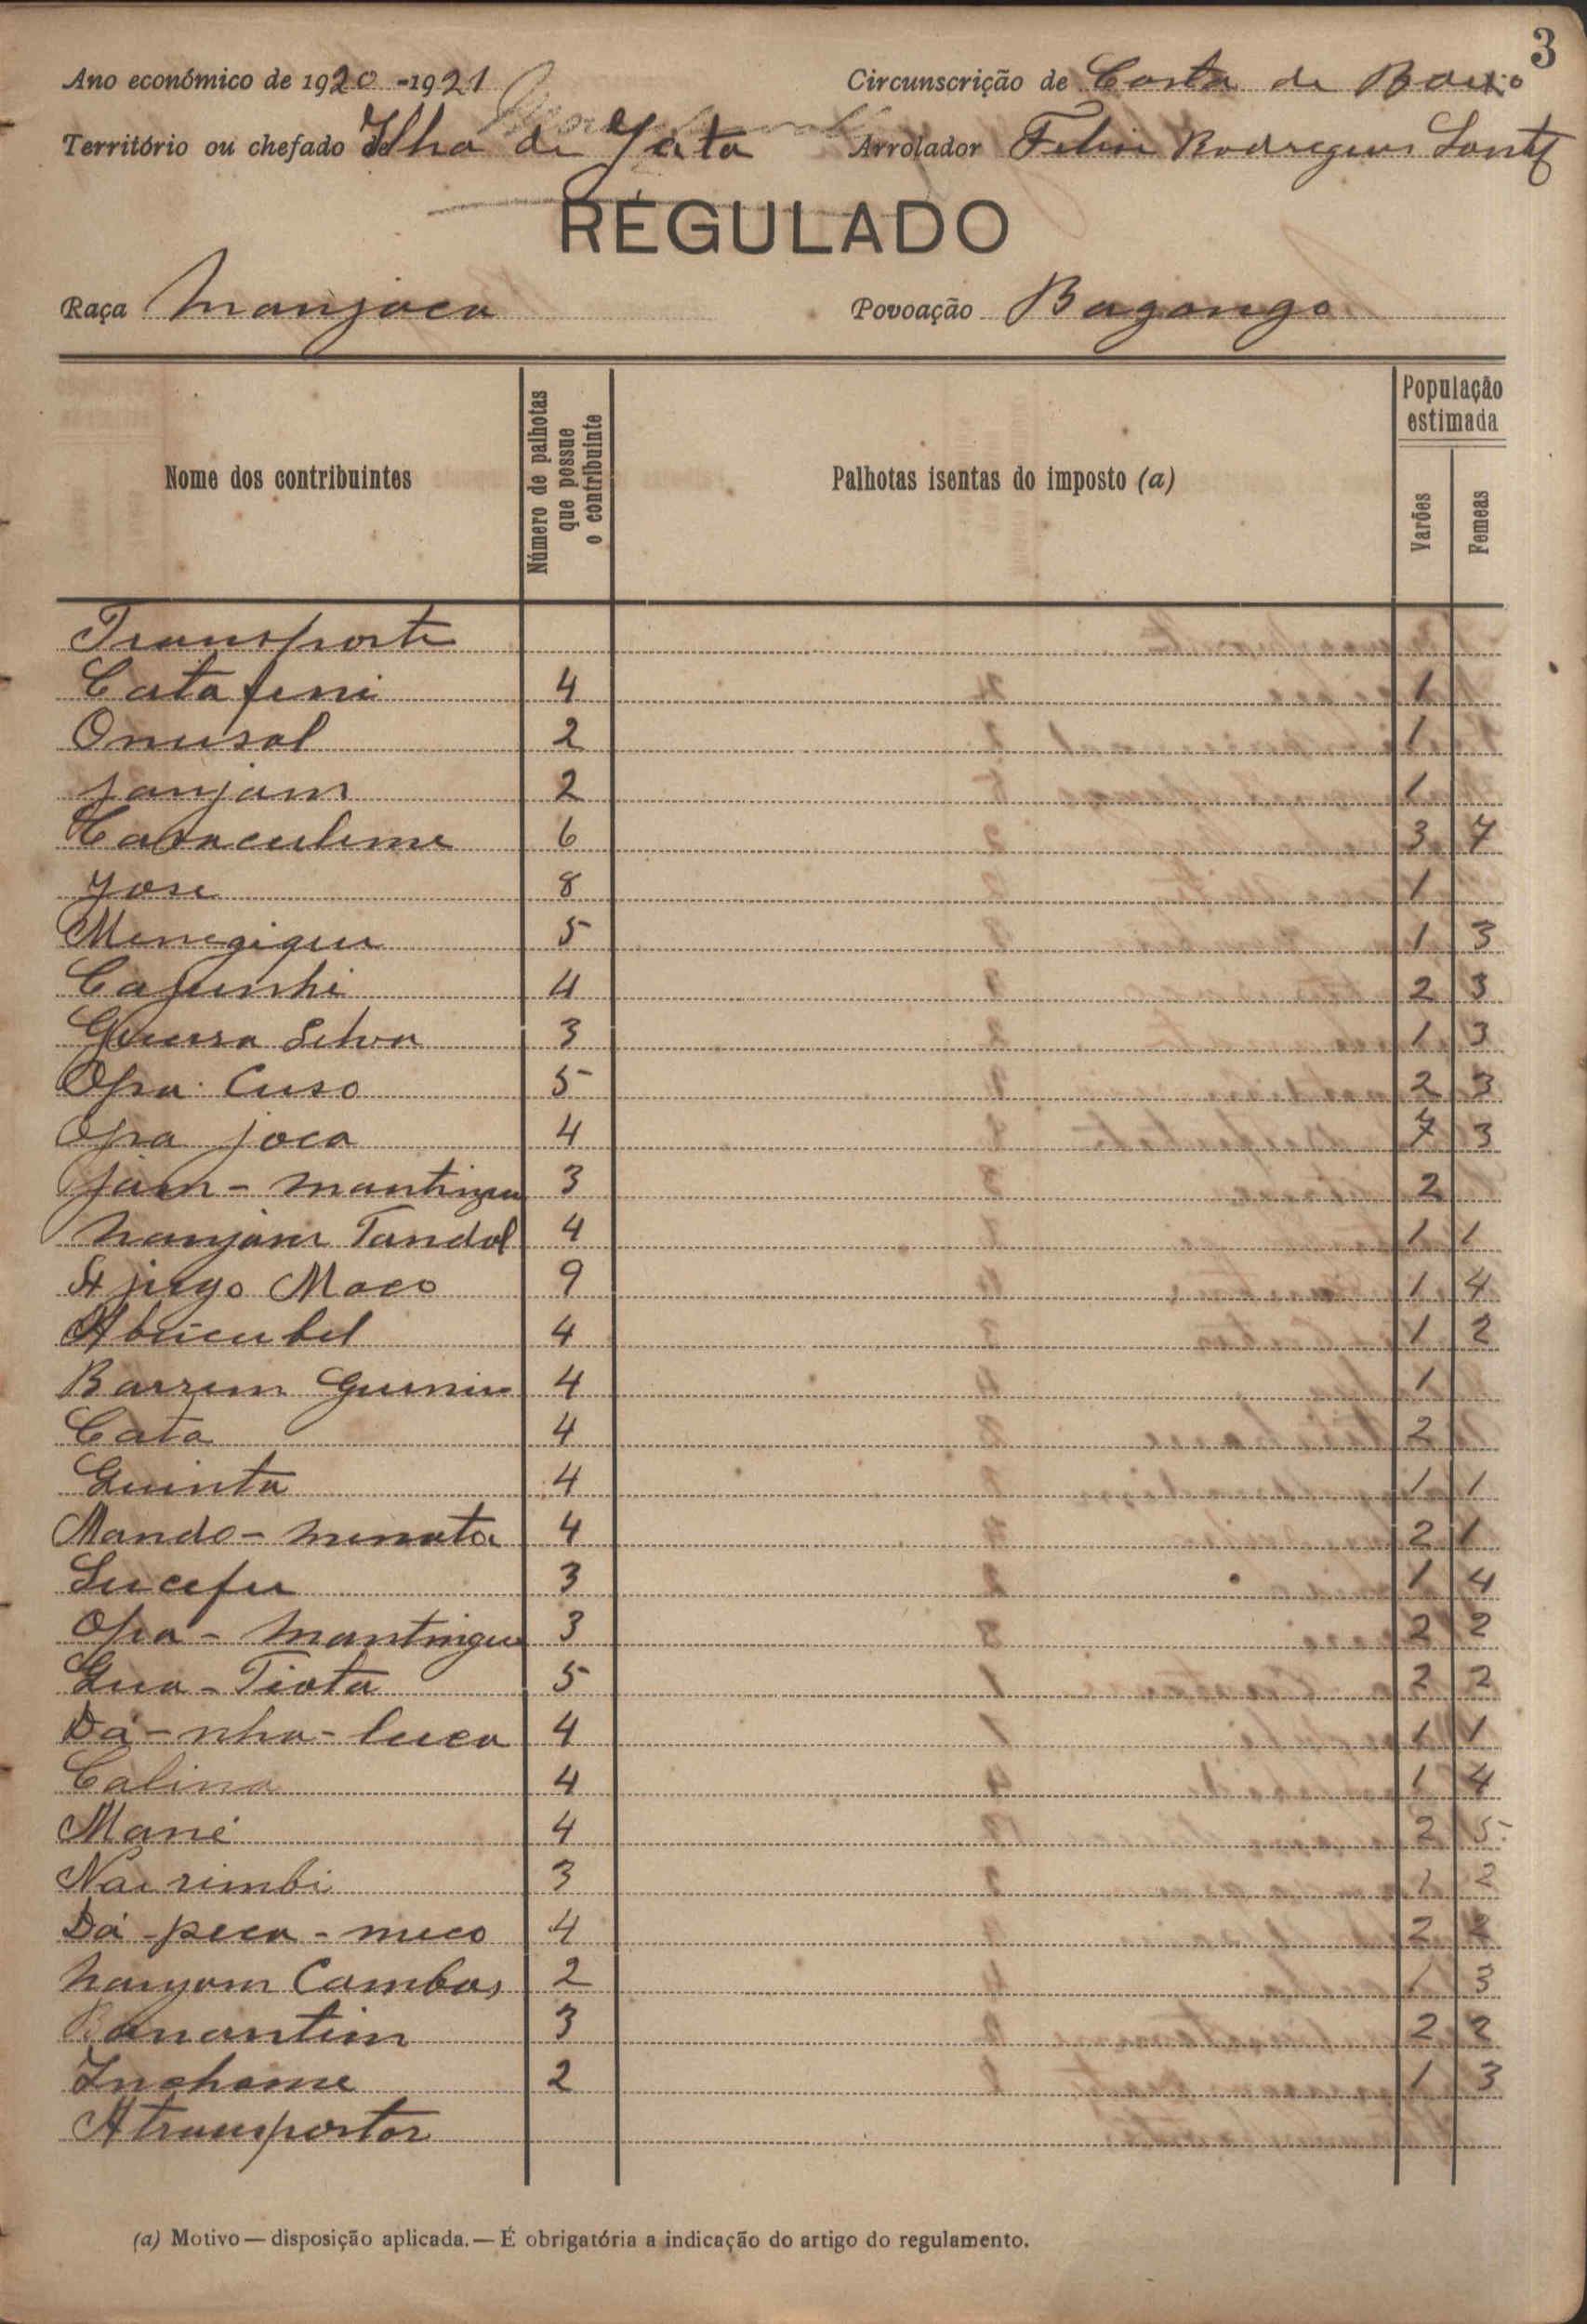 3
Ano económico de 1920-1921 Circunscrição de Costa de Baixo
Território ou chefado de Ilha de Jata Arrolador Felix Rodrigues Santos
REGULADO
Raça Manjaca Povoação Bagongo
Nome dos contribuintes
Número de palhotas que possue o contribuinte
Palhotas isentas do imposto (a)
População estimada
Varões Femeas
Transporte
Catafeni 4 1
Onusal 2 1
Janjam 2 1
6 3 7
Jose 8 1
Menegigue 5 1 3
Cajunhi 4 2 3
Guerra Silva 3 1 3
Opa Cuso 5 2 3
Opa joca 4 7 3
Jam - mantingue 3 2
Nanjam Tandol 4 1 1
Maco 9 1 4
Abiicubel 4 1 2
Barrem 4 1
Cata 4 2
Quinta 4 1 1
Mando - menata 4 2 1
Lucefu 3 1 4
Opa - mantingue 3 2 2
Gua - Tiota 5 2 2
Dá - nha - luca 4 1 1
Calina 4 1 4
Mané 4 2 5
Nai rimbi 3 1 2
Dá - peca - meco 4 2 2
Nanjam Cambas 2 1 3
Banantim 3 2 2
Inchame 2 1 3
A transportar
(a) Motivo — disposição aplicada. — É obrigatória a indicação do artigo do regulamento.